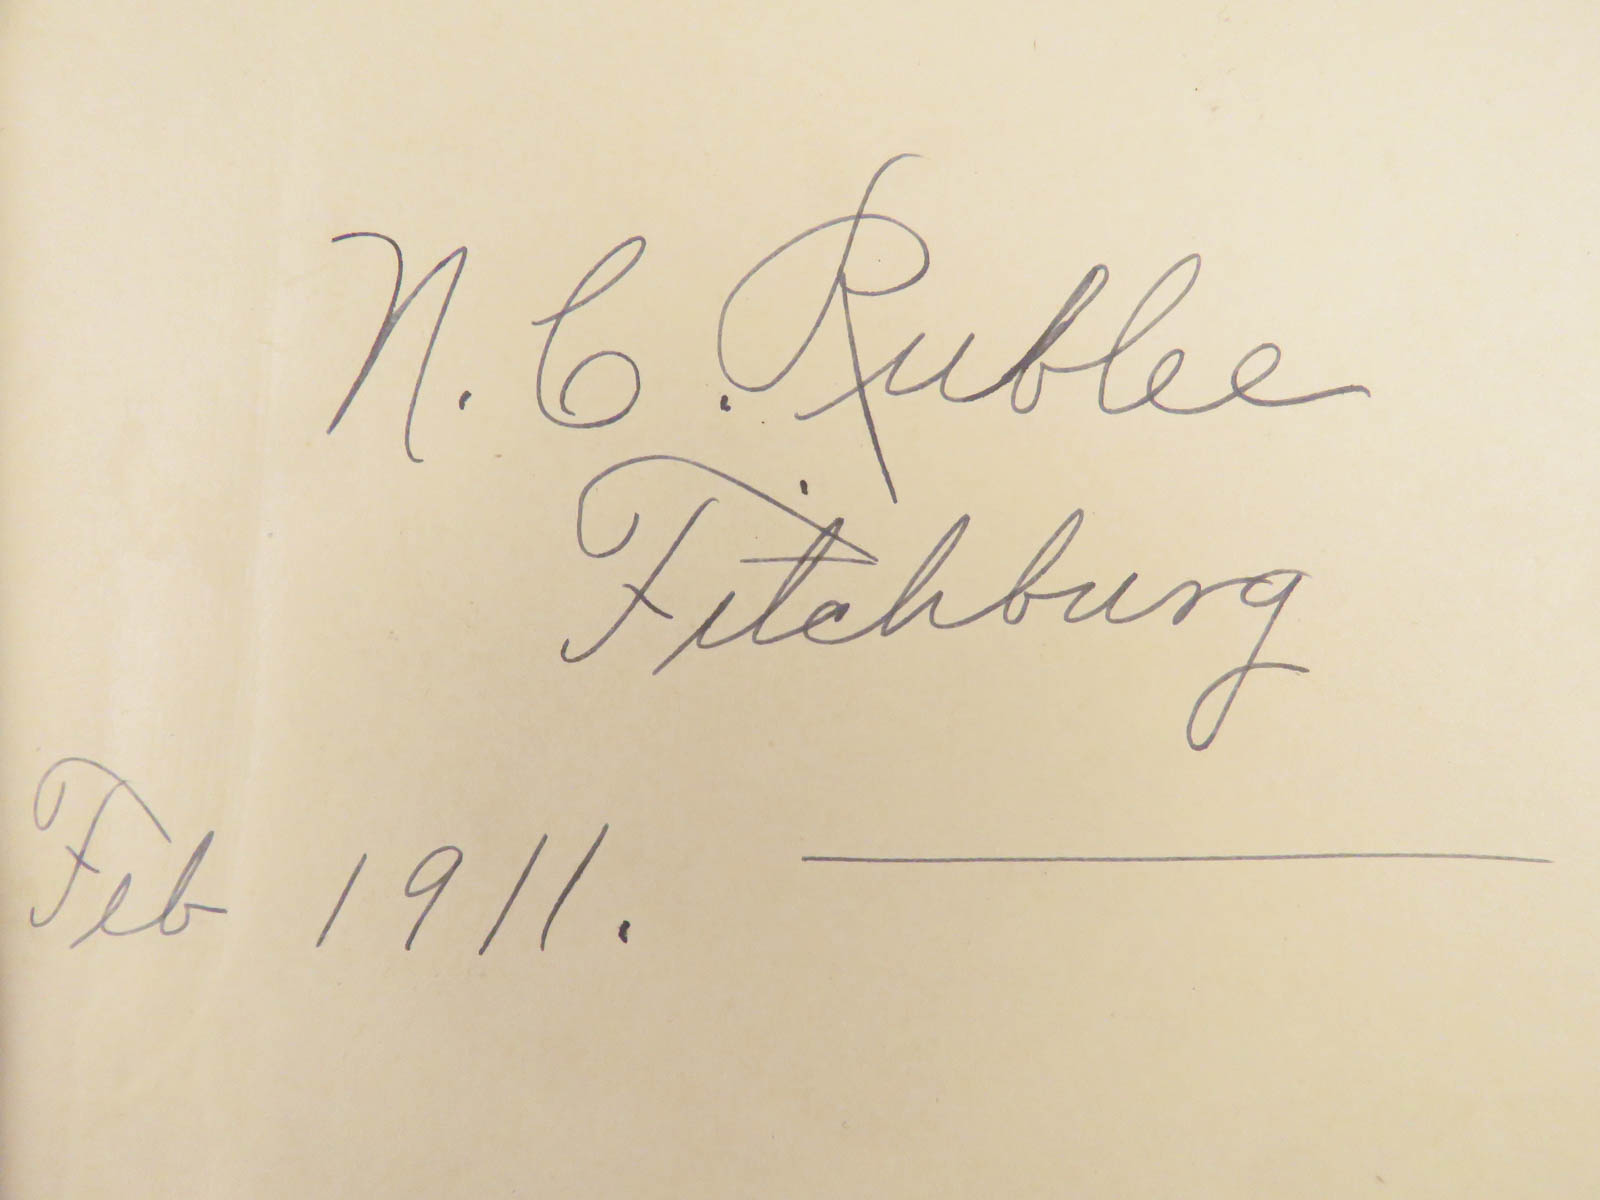 N. C. Rublee
Fitchburg
Feb 1911.